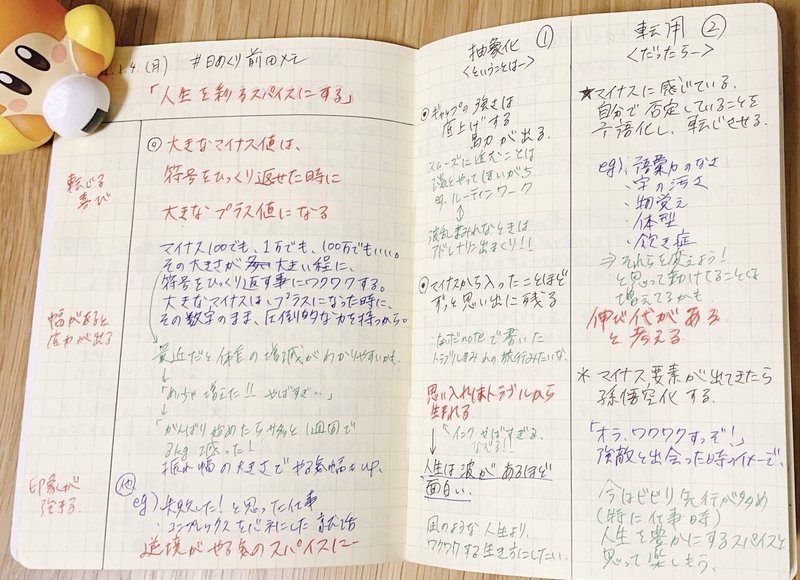 1.4.(月) #日めくり前田メモ
「人生を彩るスパイスにする」
転じる
喜び
幅があると
底力が出る
印象が
強まる
◎ 大きなマイナス値は、
符号をひっくり返せた時に
大きなプラス値になる
マイナス100でも、1万でも、100万でもいい。
その大きさが 大きい程に、
符号をひっくり返す事にワクワクする。
大きなマイナスは、プラスになった時に、
その数字のまま、圧倒的な力を持つから。
最近だと体重の増減がわかりやすいかも。
↓
「めっちゃ増えた!! やばすぎ…」
↓
「がんばり始めたら 1週間で
3kg 減った!
振れ幅の大きさでやる気幅もup.
他
eg) ・失敗した!と思った仕事
・コンプレックスをバネにした就活
逆境がやる気のスパイスに―
抽象化 ①
<ということは―>
◎ギャップの強さは
底上げする
馬力が出る。
スムーズに進むことは
淡々とやってしまいがち
ルーティンワーク
↕
波乱まみれなときは
アドレナリン出まくり!!
◎マイナスから入ったことほど
ずっと思い出に残る
：なだnoteで書いた
トラブルまみれの旅行みたいな。
思い入れはトラブルから
生まれる
↓
インクやばすぎる、
なでる!!
人生は波があるほど
面白い。
凪のような人生より、
ワクワクする生き方にしたい。
転用 ②
<だったら―>
★マイナスに感じている。
自分で否定していることを
言語化し、転じさせる。
eg) ・語彙力のなさ
・字の汚さ
・物覚え
・体型
・飽き症
⇒それらを変えよう!
と思って動けてることは
増えてるかも。
伸び代がある
と考える
＊マイナス要素が出てきたら
孫悟空化する。
「オラ、ワクワクすっぞ!」
強敵と出会った時のイメージで。
今はビビリ先行が多め
(特に仕事時)
人生を豊かにするスパイスと
思って楽しもう。